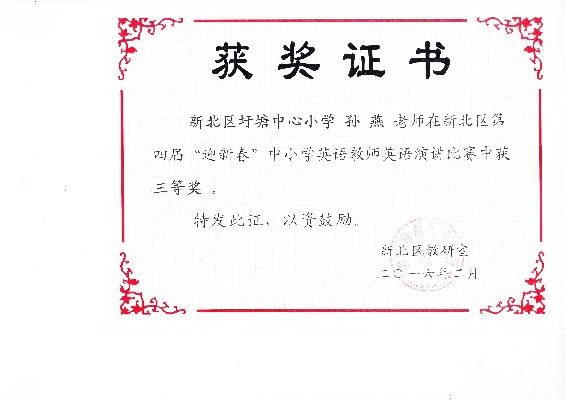 获奖证书
新北区圩塘中心小学 孙 燕 老师在新北区第
四届“迎新春”中小学英语教师英语演讲比赛中获
三等奖。
特发此证，以资鼓励。
新北区教研室
二〇一六年二月